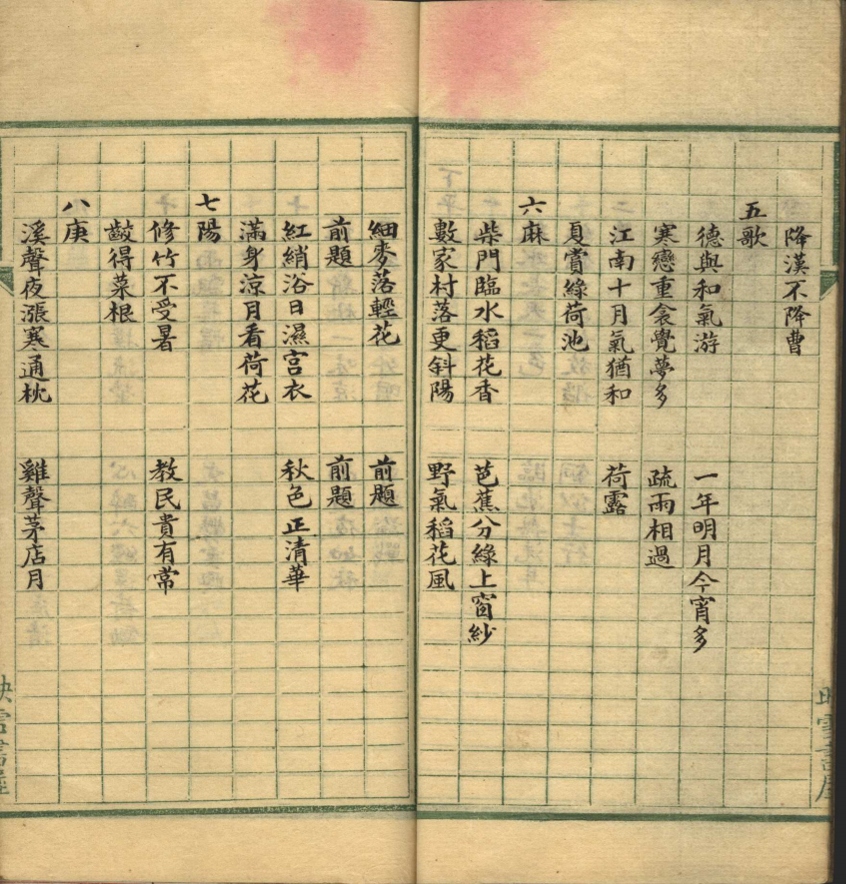 降漢不降曹
五歌
德與和氣游 一年明月今宵多
寒戀重衾覺夢多 疏雨相過
江南十月氣猶和 荷露
夏賞綠荷池
六麻
柴門臨水稻花香 芭蕉分綠上窗紗
數家村落更斜陽 野氣稻花風
細麥落輕花 前題
前題 前題
紅綃浴日濕宮衣 秋色正清華
滿身涼月看荷花
七陽
修竹不受暑 教民貴有常
齩得菜根
八庚
溪聲夜漲寒通枕 雞聲茅店月
映雪書屋